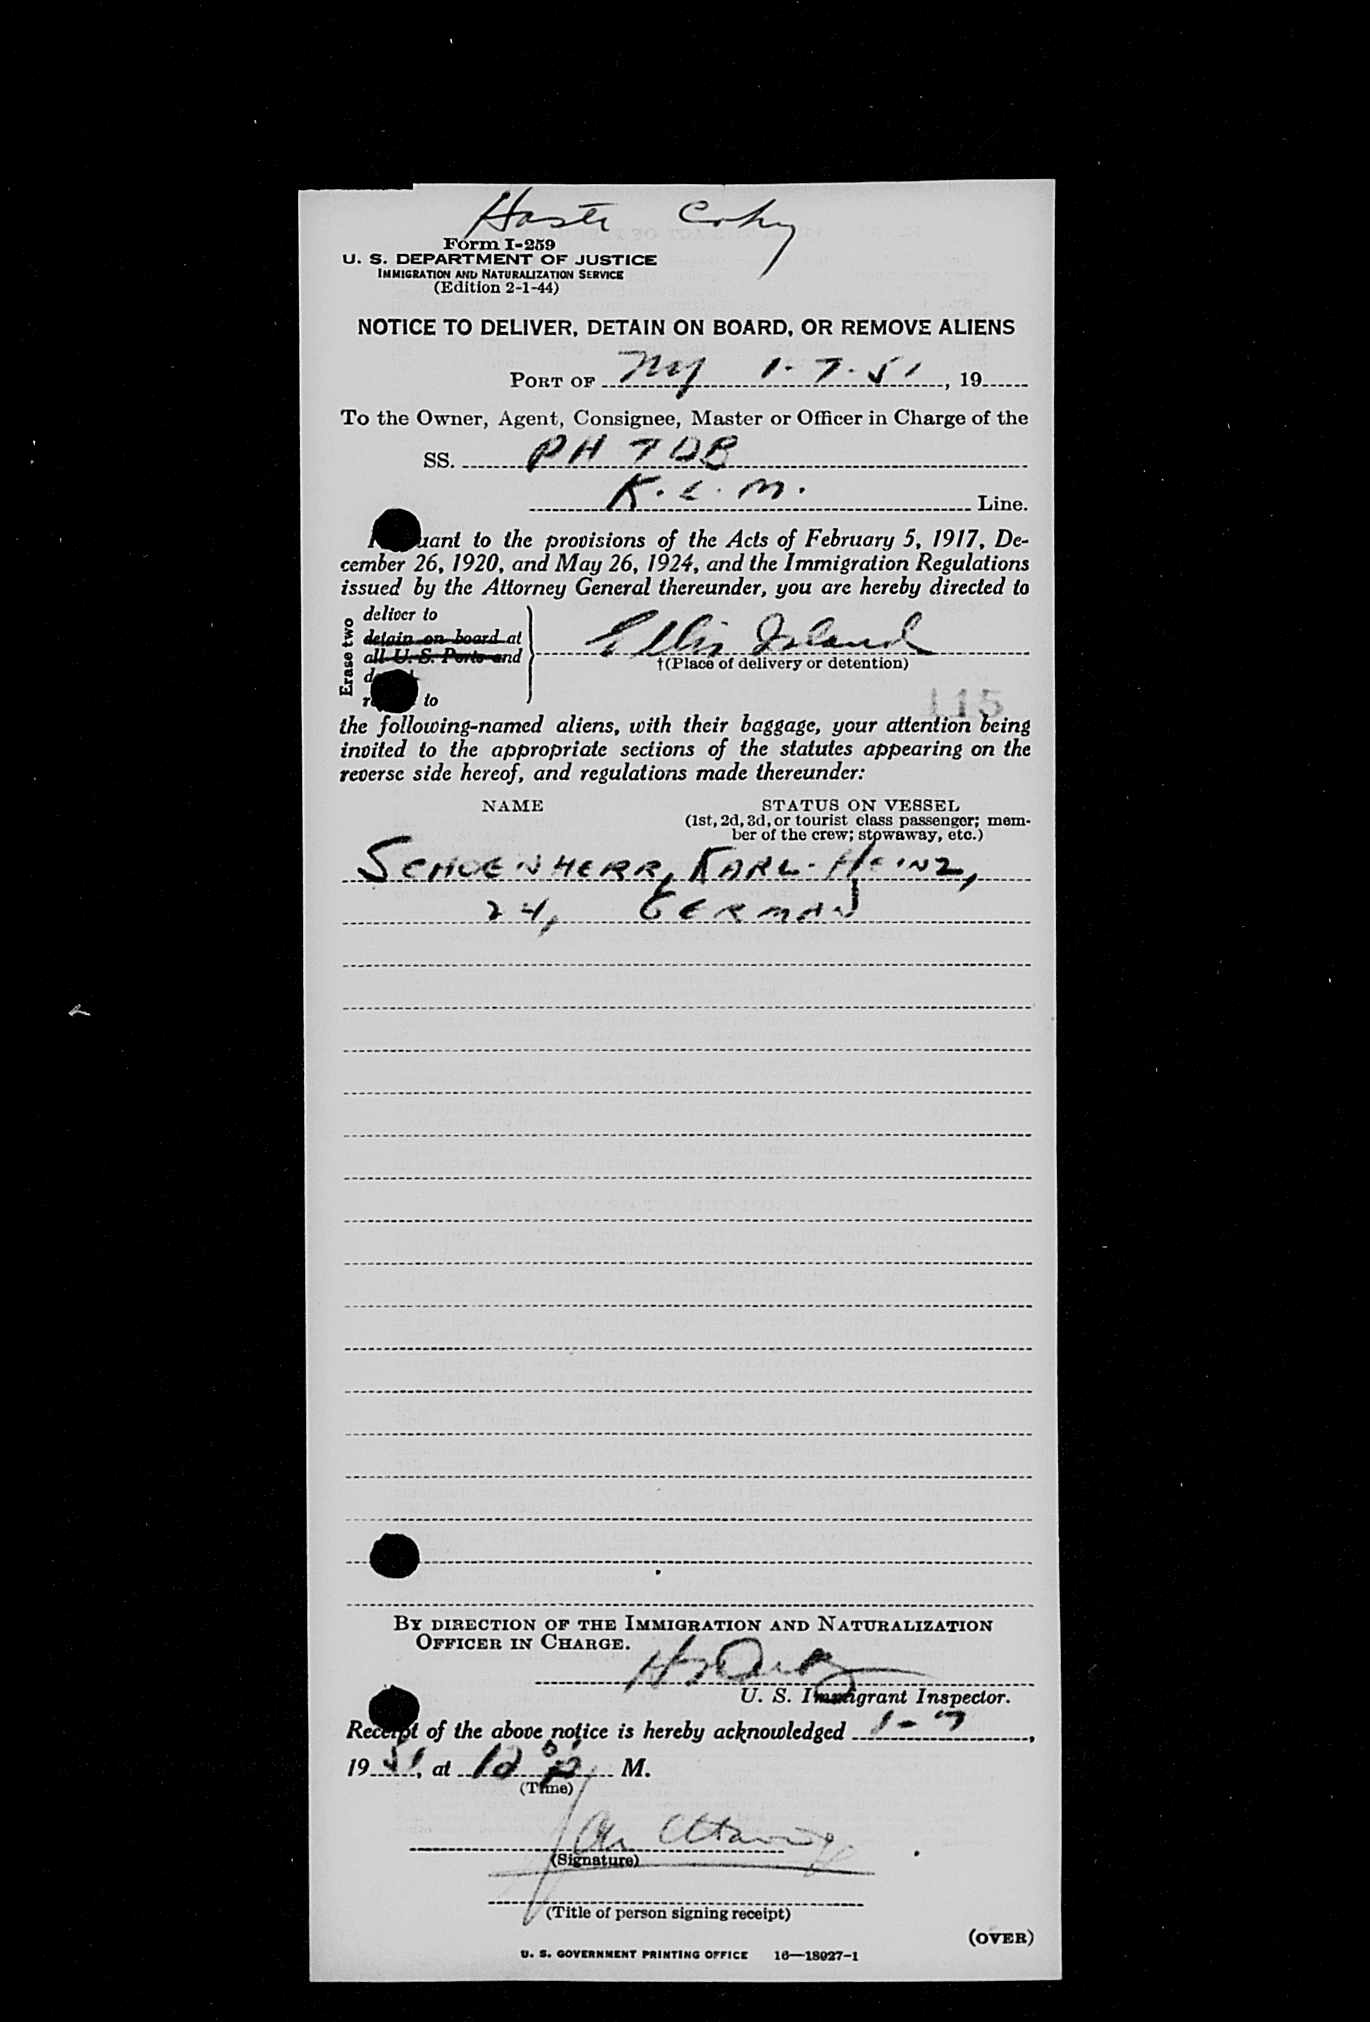 Form I-259
U. S. DEPARTMENT OF JUSTICE
IMMIGRATION AND NATURALIZATION SERVICE
(Edition 2-1-44)
NOTICE TO DELIVER, DETAIN ON BOARD, OR REMOVE ALIENS
PORT OF NY 1-7-51, 19
To the Owner, Agent, Consignee, Master or Officer in Charge of the
SS. PH TDB
K.L.M. Line.
uant to the provisions of the Acts of February 5, 1917, De-
cember 26, 1920, and May 26, 1924, and the Immigration Regulations
issued by the Attorney General thereunder, you are hereby directed to
Erase two
deliver to
detain on board at
all U. S. Ports and
to
Ellis Island
†(Place of delivery or detention)
115
the following-named aliens, with their baggage, your attention being
invited to the appropriate sections of the statutes appearing on the
reverse side hereof, and regulations made thereunder:
NAME STATUS ON VESSEL
(1st, 2d, 3d, or tourist class passenger; mem-
ber of the crew; stowaway, etc.)
SCHOENHERR, KARL-HEINZ,
24, GERMAN
BY DIRECTION OF THE IMMIGRATION AND NATURALIZATION
OFFICER IN CHARGE.
U. S. Immigrant Inspector.
Receipt of the above notice is hereby acknowledged 1-7,
1951, at M.
(Time)
(Signature)
(Title of person signing receipt)
(OVER)
U. S. GOVERNMENT PRINTING OFFICE 16—18027-1